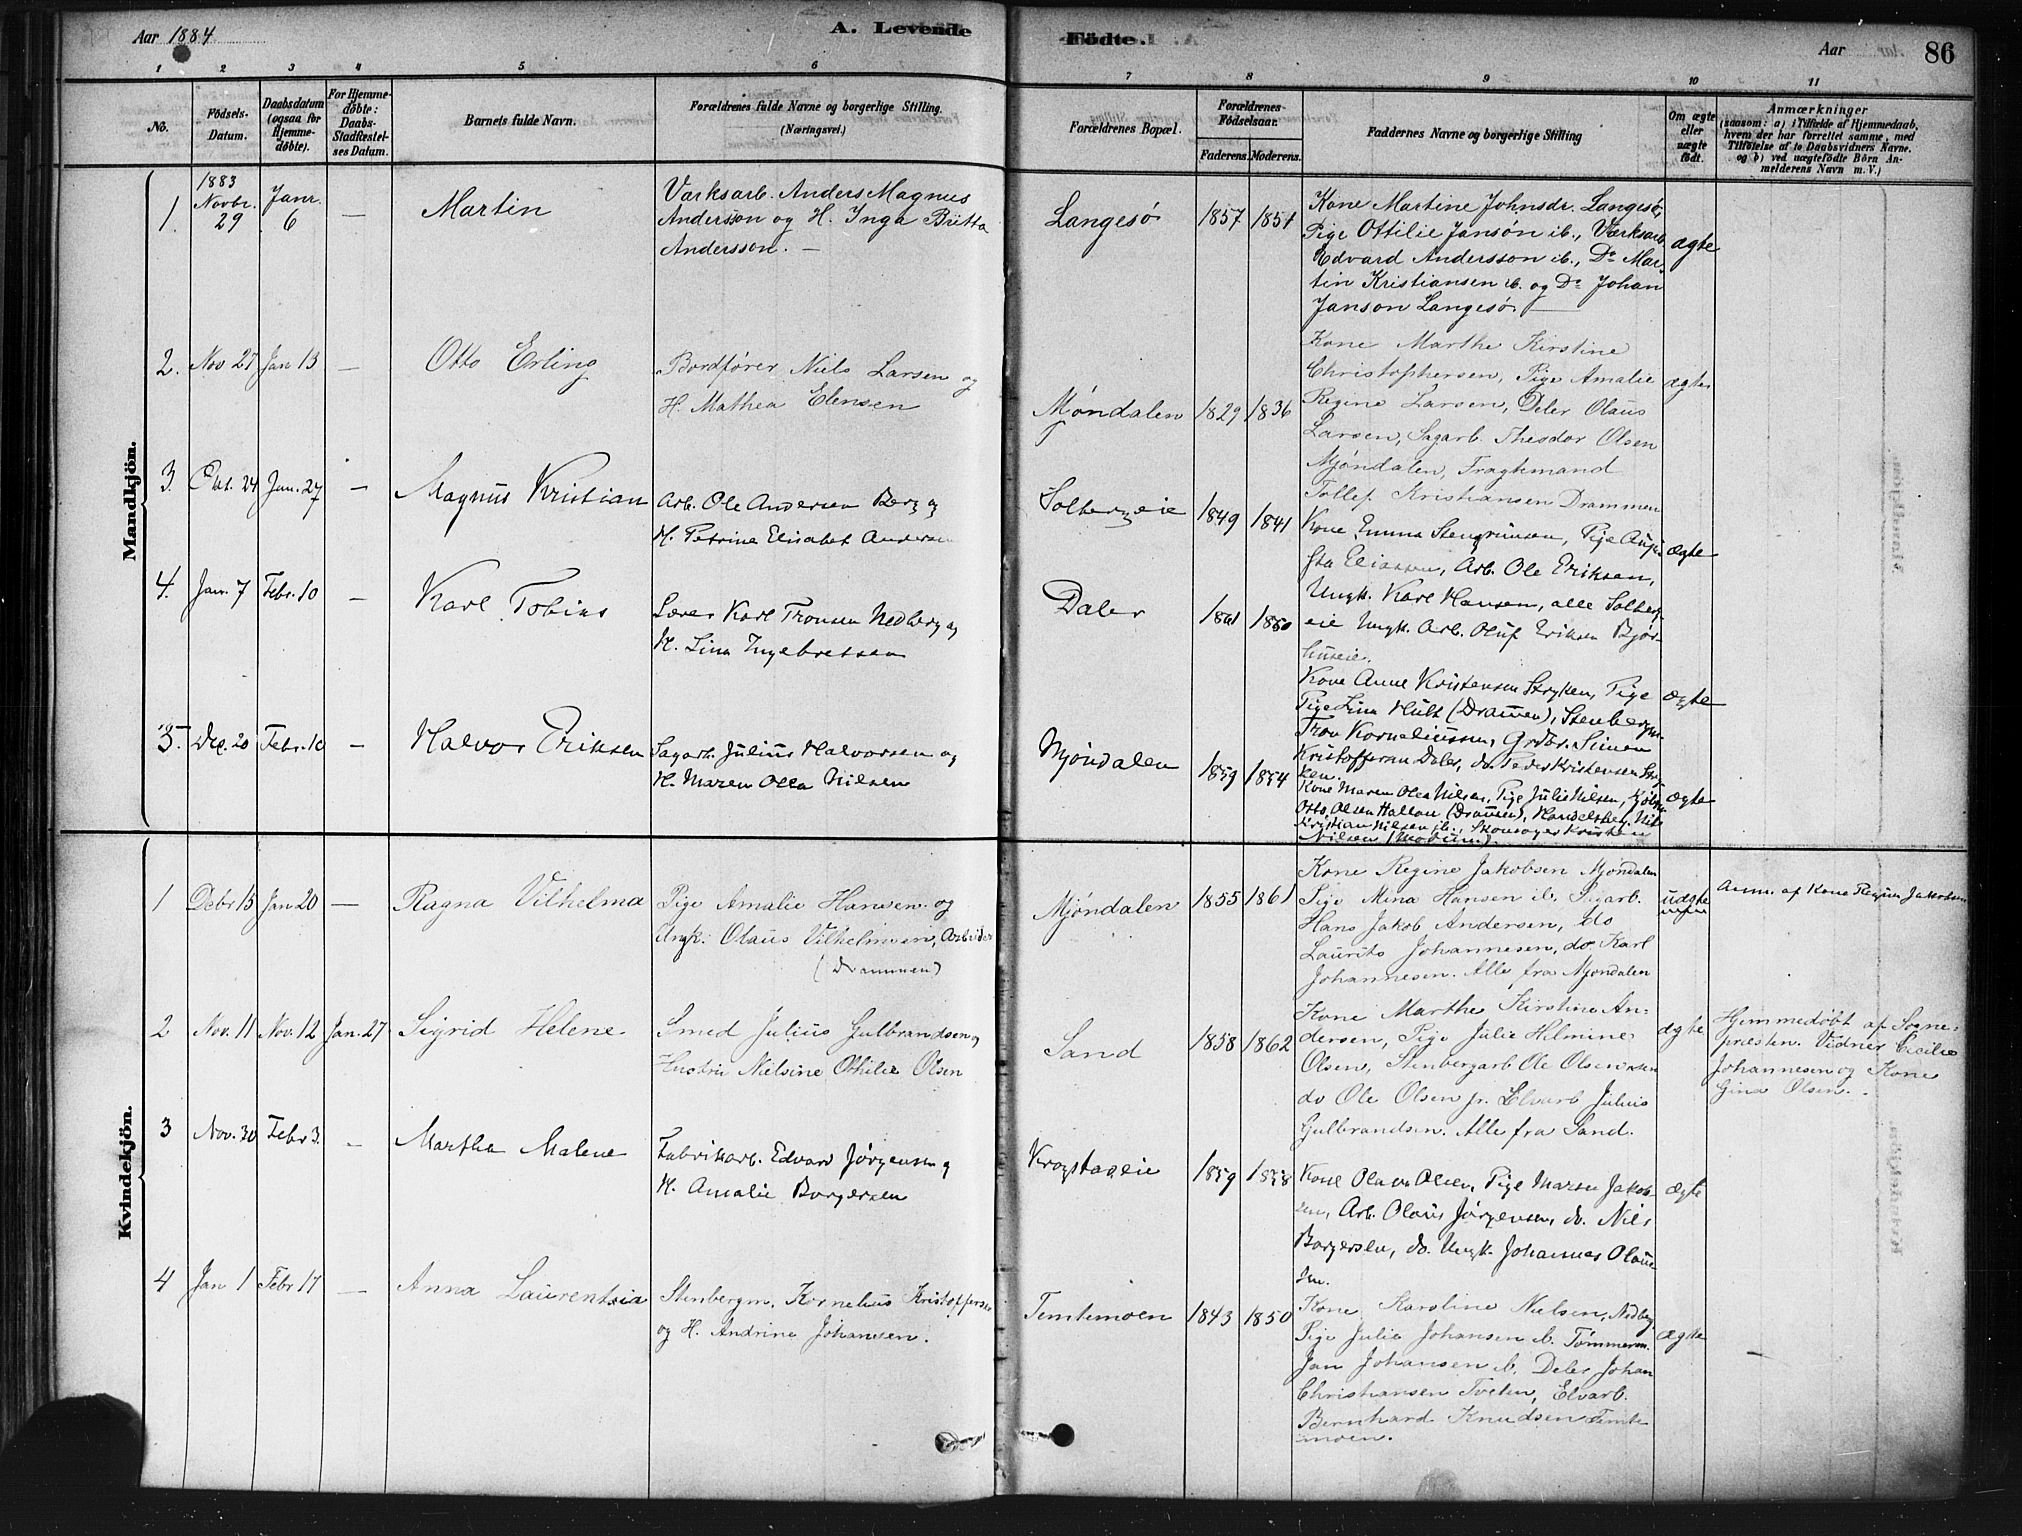 Aar 1884
A. Levende
Fødte.
Aar
86
1 2 3 4 5 6 7 8 9 10 11
No.
Fødsels-
Datum.
Daabsdatum
(ogsaa for
Hjemme-
døbte).
For Hjemme-
døbte:
Daabs-
Stadfæstel-
ses Datum.
Barnets fulde Navn.
Forældrenes fulde Navne og borgerlige Stilling.
(Næringsvei.)
Forældrenes Bopæl.
Forældrenes
Fødselsaar.
Faderens. Moderens.
Faddernes Navne og borgerlige Stilling
Om ægte
eller
uægte
født.
Anmærkninger
(saasom: a) i Tilfælde af Hjemmedaab,
hvem der har forrettet samme, med
Tilføielse af to Daabsvidners Navne.
og b) ved uægtefødte Børn An-
melderens Navn m. V.)
Mandkjön.
1.
1883
Novbr.
29
Janr.
6
—
Martin
Værksarb. Anders Magnus
Andersson og H. Inga Britta
Andersson. —
Langesø
1857
1851
Kone Martine Johnsdr. Langesø,
Pige Ottilie Janson ib., Værksarb.
Edvard Andersson ib., Do Mar-
tin Kristiansen ib. og Do Johan
Janson Langesø
ægte
2.
Nov 27
Jan 13
—
Otto Erling
Bordfører Niels Larsen og
H. Mathea Elensen
Mjøndalen
1829
1836
Kone Marthe Kirstine
Christophersen, Pige Amalie
Regine Larsen, Deler Olaus
Larsen, Sagarb. Theodor Olsen
Mjøndalen, Fragtmand
Tollef Kristiansen Drammen
ægte
3.
Okt. 24
Jan. 27
—
Magnus Kristian
Arb. Ole Andersen Berg og
H. Petrine Elisabet Andersen
Solbergeie
1849
1841
Kone Emma Stengrimsen, Pige Augu-
sta Eliassen, Arb. Ole Eriksen,
Ungk. Karl Hansen, alle Solberg-
eie Ungk. Arb. Oluf Eriksen Bjør-
huseie.
ægte
4.
Jan. 7
Febr. 10
—
Karl Tobias
Lærer Karl Tronsen Nedberg og
H. Lina Ingebretsen
Daler
1861
1850
Kone Anne Kristensen Stryken, Pige
Pige Lina Hult (Drammen), Stenbergm.
Tron Korneliussen, Grdbr. Simen
Kristoffersen Daler, do. Peder Kristensen Stry-
ken.
ægte
5.
Dec. 20
Febr. 10
—
Halvor Eriksen
Sagarb. Julius Halvorsen og
H. Maren Olea Nilsen
Mjøndalen
1859
1854
Kone Maren Olea Nilsen, Pige Julie Nilsen,
Otto Olsen (Drammen),
Kristian Nilsen ib., Skomager Kristen
Nilsen (Modum).
ægte
Kvindekjön.
1
Debr 15
Jan 20
—
Ragna Vilhelma
Pige Amalie Hansen og
Ungk. Olaus Vilhelmsen, Arbeider
(Drammen)
Mjøndalen
1855
1861
Kone Regine Jakobsen Mjøndalen
Pige Mina Hansen ib, Sagarb.
Hans Jakob Andersen, do
Laurits Johannesen, do. Karl
Johannesen. Alle fra Mjøndalen
uægte
Anm. af Kone Regine Jakobsen
2
Nov. 11
Nov. 12
Jan. 27
Sigrid Helene
Smed Julius Gulbrandsen og
Hustru Nielsine Othilie Olsen
Sand
1858
1862
Kone Marthe Kirstine An-
dersen, Pige Julie Hilmine
Olsen, Stenbergarb Ole Olsen
do Ole Olsen jr. Elvarb Julius
Gulbrandsen. Alle fra Sand.
ægte
Hjemmedøbt af Sogne-
præsten. Vidner Cecilie
Johannesen og Kone
Gina Olsen.
3
Nov. 30
Febr 3.
—
Martha Malene
Fabrikarb. Edvard Jørgensen og
H. Amalie Borgersen
Krogstadeie
1859
1858
Kone Olava Olsen, Pige Maren Jakob-
sen, Arb. Olaus Jørgensen, do. Nils
Borgersen, do. Ungk. Johannes Olaus-
sen.
ægte
4
Jan 1
Febr 17
—
Anna Laurentsia
Stenbergm. Kornelius Kristoffersen
og H. Andrine Johansen.
Temtemoen
1843
1850
Kone Karoline Nielsen, Nedberg,
Pige Julie Johansen ib. Tømmerm.
Jan Johansen ib, Deler Johan
Christiansen Tveten, Elvarb.
Bernhard Knudsen Temte-
moen.
ægte
—